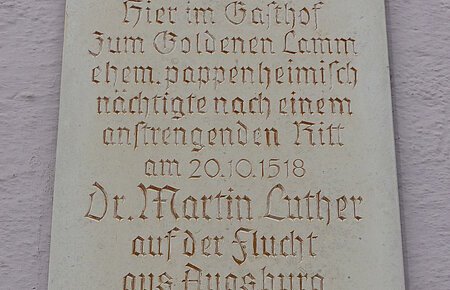 Hier im Gasthof
Zum Goldenen Lamm
ehem. pappenheimisch
nächtigte nach einem
anstrengenden Ritt
am 20.10.1518
Dr. Martin Luther
auf der Flucht
aus Augsburg